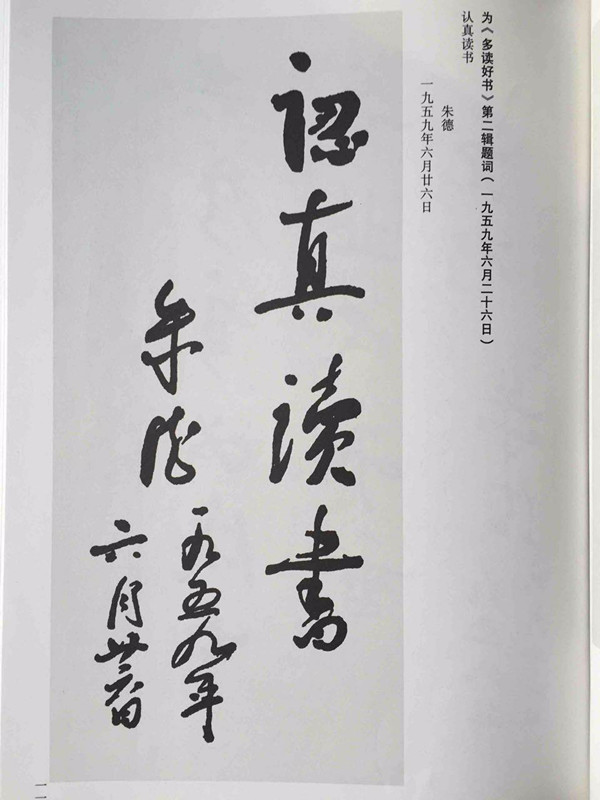 为《多读好书》第二辑题词(一九五九年六月二十六日)
认真读书
朱德
一九五九年六月廿六日
認真读書
朱德
一九五九年
六月廿六日
一一